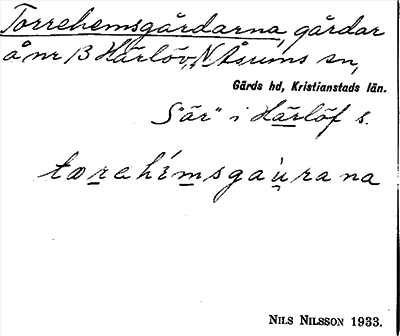 Torrehemsgårdarna, gårdar
å nr 13 Härlöv, N Åsums sn,
Gärds hd, Kristianstads län.
S"är" i Härlöf s.
tærehímsgaùrana
NILS NILSSON 1933.